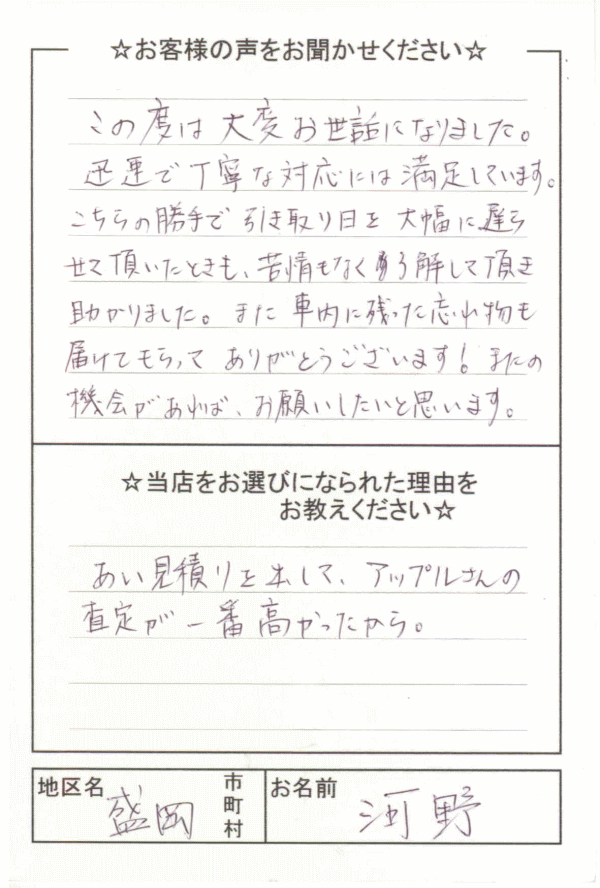 ☆お客様の声をお聞かせください☆
この度は大変お世話になりました。
迅速で丁寧な対応には満足しています。
こちらの勝手で引き取り日を大幅に遅ら
せて頂いたときも、苦情もなく了解して頂き
助かりました。また車内に残った忘れ物も
届けてもらってありがとうございます！またの
機会があれば、お願いしたいと思います。
☆当店をお選びになられた理由を
お教えください☆
あい見積りを出して、アップルさんの
査定が一番高かったから。
地区名 盛岡 市町村
お名前 河野